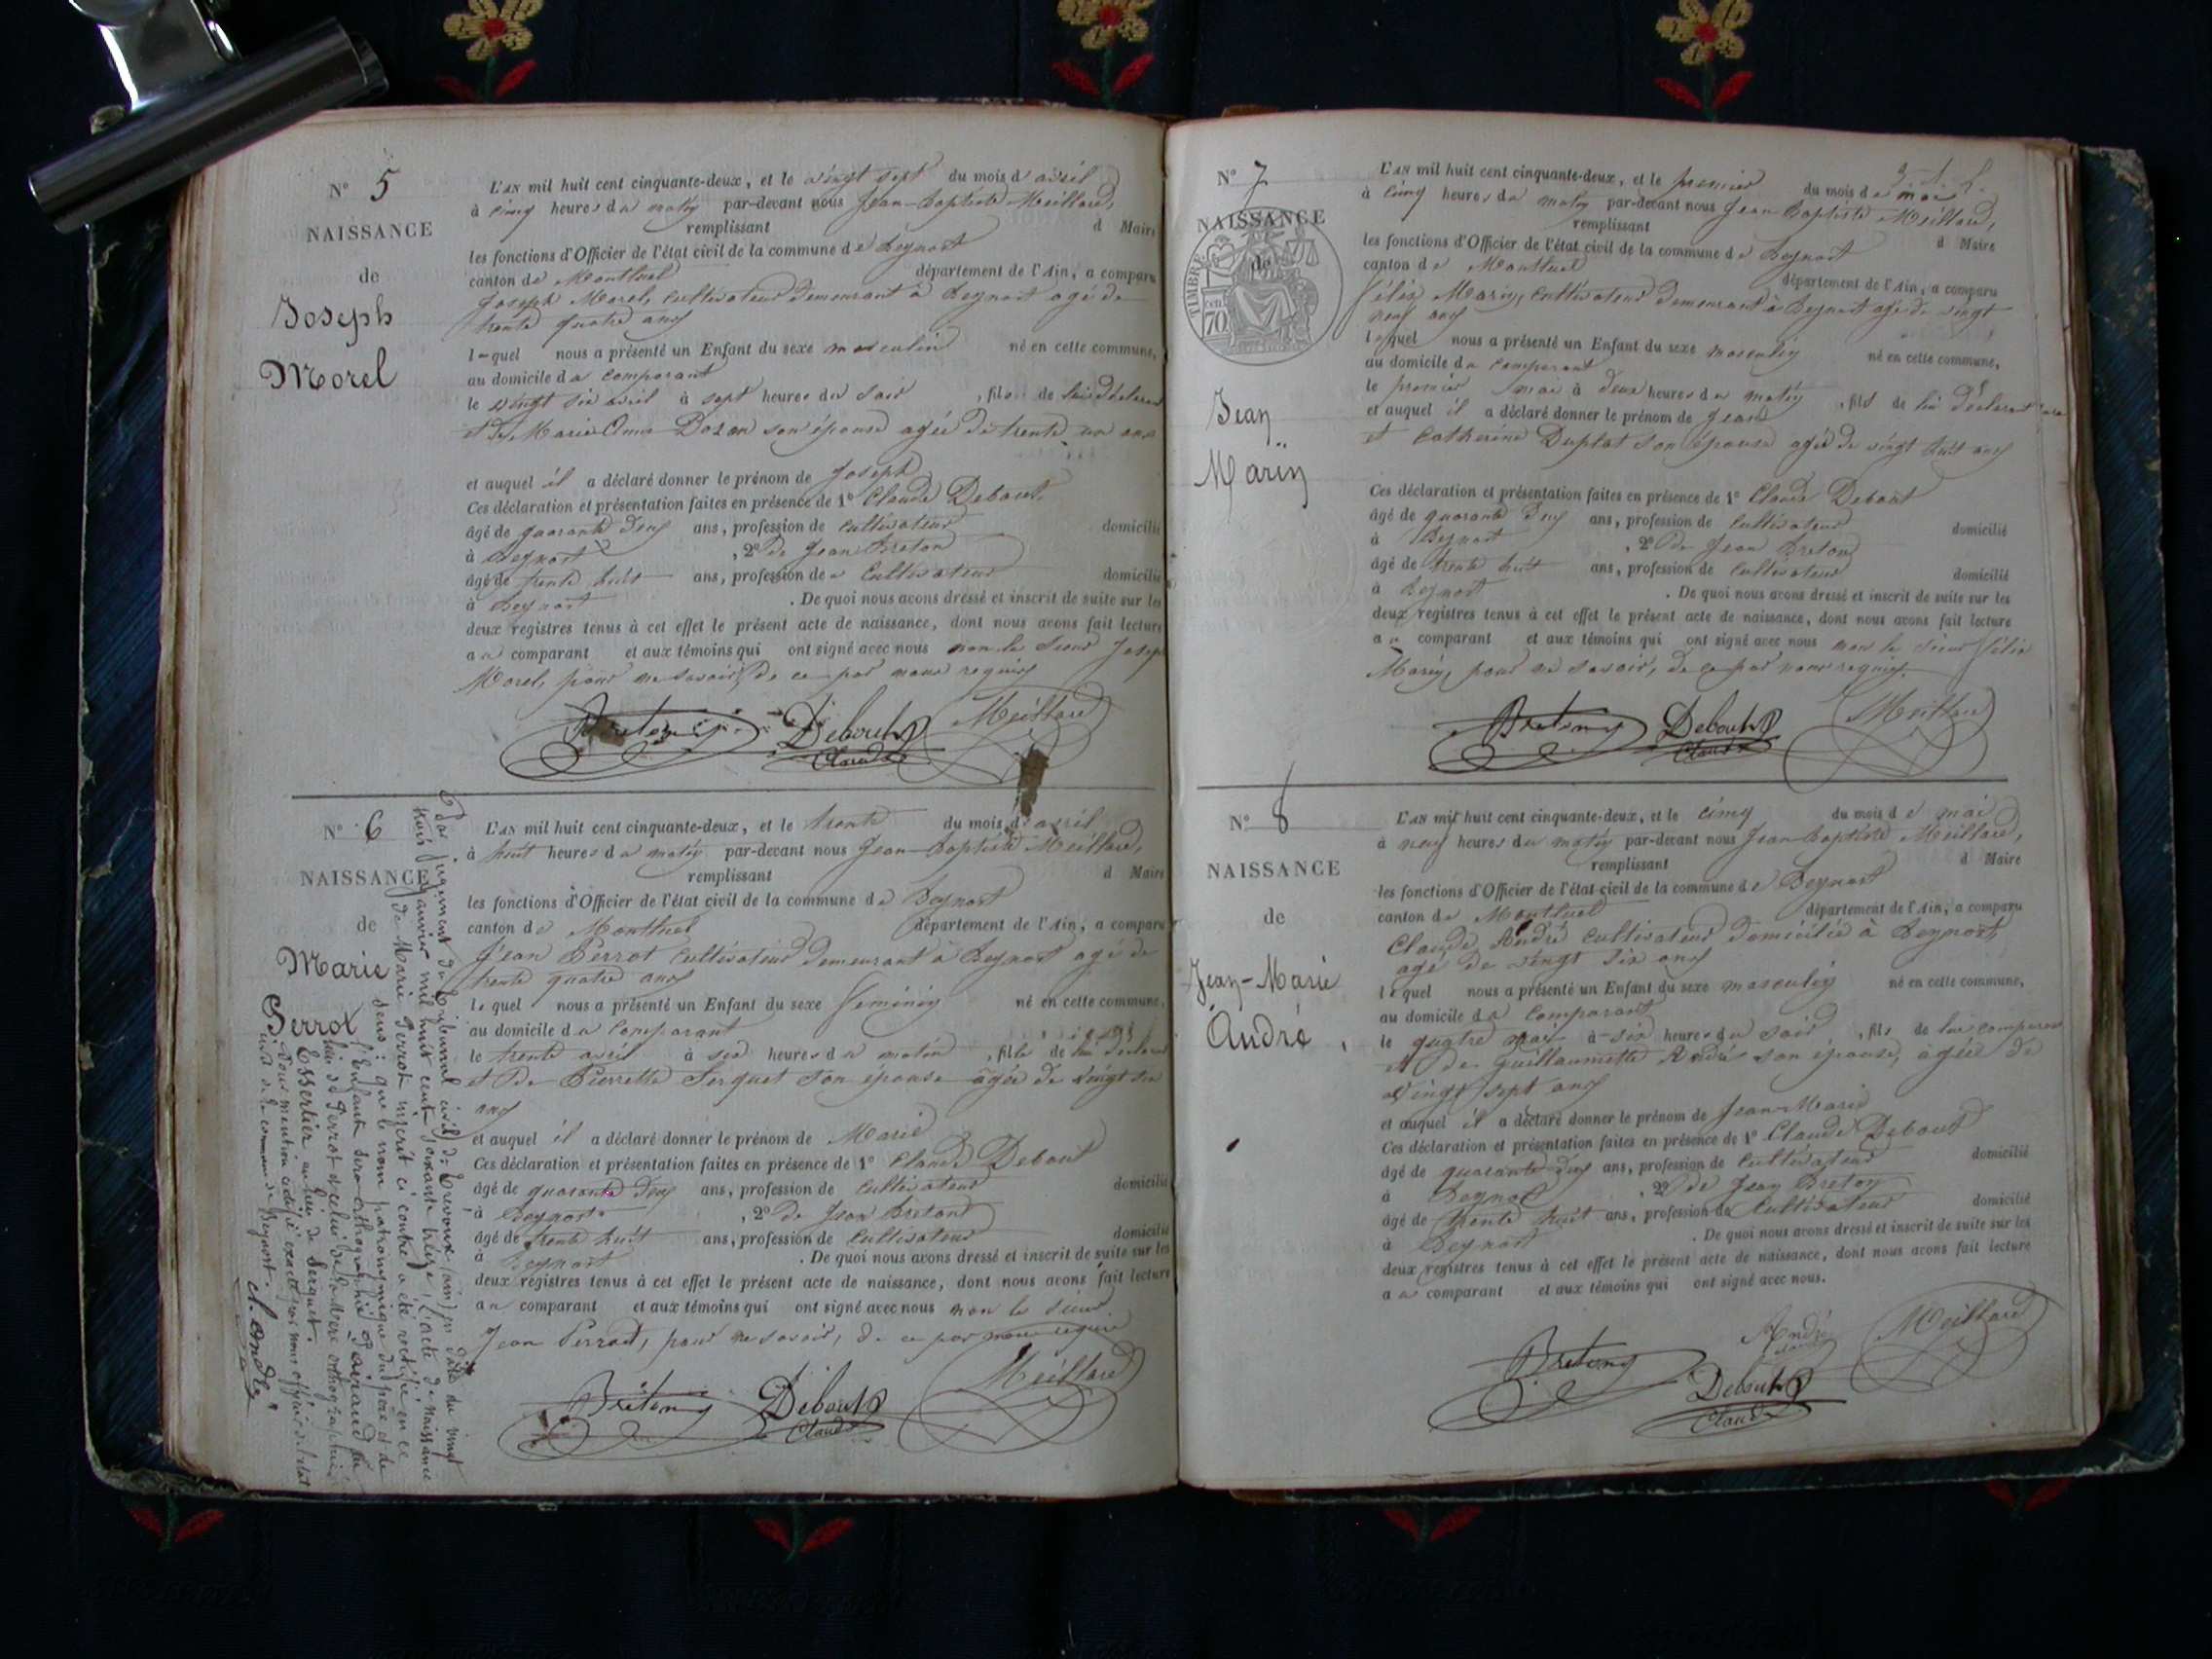 N° 5
NAISSANCE
de
Joseph
Morel
L'AN mil huit cent cinquante-deux, et le vingt sept du mois d'avril
à cinq heures du matin par-devant nous Jean-Baptiste Meillard,
remplissant d Maire
les fonctions d'Officier de l'état civil de la commune de Beynost
canton de Montluel département de l'Ain, a comparu
Joseph Morel, cultivateur demeurant à Beynost agé de
trente quatre ans
lequel nous a présenté un Enfant du sexe masculin né en cette commune,
au domicile du comparant
le vingt six avril à sept heures du soir , fils de lui déclarant
et de Marie Bozon son épouse agée de trente un ans
et auquel il a déclaré donner le prénom de Joseph
Ces déclaration et présentation faites en présence de 1° Claude Debout
âgé de quarante deux ans, profession de cultivateur domicilié
à Beynost , 2° de Jean Breton
âgé de trente huit ans, profession de cultivateur domicilié
à Beynost . De quoi nous avons dressé et inscrit de suite sur les
deux registres tenus à cet effet le présent acte de naissance, dont nous avons fait lecture
au comparant et aux témoins qui ont signé avec nous non le sieur Joseph
Morel, pour ne savoir, de ce par nous requis
Breton Debout Meillard
Claude
N° 6
NAISSANCE
de
Marie
Perrot
Par jugement du tribunal civil de Trévoux (ain) en date du vingt
trois janvier mil huit cent soixante treize, l'acte de naissance
de Marie Perrot inscrit ci contre a été rectifié en ce
sens : que le nom patronymique du père et de
l'Enfant sera orthographié Pairaud au
lieu de Perrot et celui de la mère orthographié
Essertier au lieu de Serquet.
Pour mention certifié exact par nous officier de l'état
civil de la commune de Beynost.
L'AN mil huit cent cinquante-deux, et le trente du mois d'avril
à huit heures du matin par-devant nous Jean-Baptiste Meillard,
remplissant d Maire
les fonctions d'Officier de l'état civil de la commune de Beynost
canton de Montluel département de l'Ain, a comparu
Jean Perrot cultivateur demeurant à Beynost agé de
trente quatre ans
lequel nous a présenté un Enfant du sexe féminin né en cette commune,
au domicile du comparant
le trente avril à six heures du matin , fille de lui déclarant
et de Pierrette Serquet son épouse agée de vingt six
ans
et auquel il a déclaré donner le prénom de Marie
Ces déclaration et présentation faites en présence de 1° Claude Debout
âgé de quarante deux ans, profession de cultivateur domicilié
à Beynost , 2° de Jean Breton
âgé de trente huit ans, profession de cultivateur domicilié
à Beynost . De quoi nous avons dressé et inscrit de suite sur les
deux registres tenus à cet effet le présent acte de naissance, dont nous avons fait lecture
au comparant et aux témoins qui ont signé avec nous non le sieur
Jean Perrot, pour ne savoir, de ce par nous requis
Breton Debout Meillard
Claude
N° 7
NAISSANCE
de
TIMBRE
70 cen
Jean
Marin
L'AN mil huit cent cinquante-deux, et le premier du mois de mai
à cinq heures du matin par-devant nous Jean-Baptiste Meillard,
remplissant d Maire
les fonctions d'Officier de l'état civil de la commune de Beynost
canton de Montluel département de l'Ain, a comparu
Félix Marin, cultivateur demeurant à Beynost agé de vingt
neuf ans
lequel nous a présenté un Enfant du sexe masculin né en cette commune,
au domicile du comparant
le premier mai à deux heures du matin , fils de lui déclarant
et auquel il a déclaré donner le prénom de Jean
et Catherine Duplat son épouse agée de vingt huit ans
Ces déclaration et présentation faites en présence de 1° Claude Debout
âgé de quarante deux ans, profession de cultivateur domicilié
à Beynost , 2° de Jean Breton
âgé de trente huit ans, profession de cultivateur domicilié
à Beynost . De quoi nous avons dressé et inscrit de suite sur les
deux registres tenus à cet effet le présent acte de naissance, dont nous avons fait lecture
au comparant et aux témoins qui ont signé avec nous non le sieur Félix
Marin, pour ne savoir, de ce par nous requis.
Breton Debout Meillard
Claude
N° 8
NAISSANCE
de
Jean-Marie
André
L'AN mil huit cent cinquante-deux, et le cinq du mois de mai
à neuf heures du matin par-devant nous Jean-Baptiste Meillard,
remplissant d Maire
les fonctions d'Officier de l'état civil de la commune de Beynost
canton de Montluel département de l'Ain, a comparu
Claude André cultivateur domicilié à Beynost,
agé de vingt six ans
lequel nous a présenté un Enfant du sexe masculin né en cette commune,
au domicile du comparant
le quatre mai à six heures du soir , fils de lui comparant
et de Guillaumette André son épouse, agée de
vingt sept ans
et auquel il a déclaré donner le prénom de Jean-Marie
Ces déclaration et présentation faites en présence de 1° Claude Debout
âgé de quarante deux ans, profession de cultivateur domicilié
à Beynost , 2° de Jean Breton
âgé de trente huit ans, profession de cultivateur domicilié
à Beynost . De quoi nous avons dressé et inscrit de suite sur les
deux registres tenus à cet effet le présent acte de naissance, dont nous avons fait lecture
au comparant et aux témoins qui ont signé avec nous.
Breton André Meillard
Debout
Claude